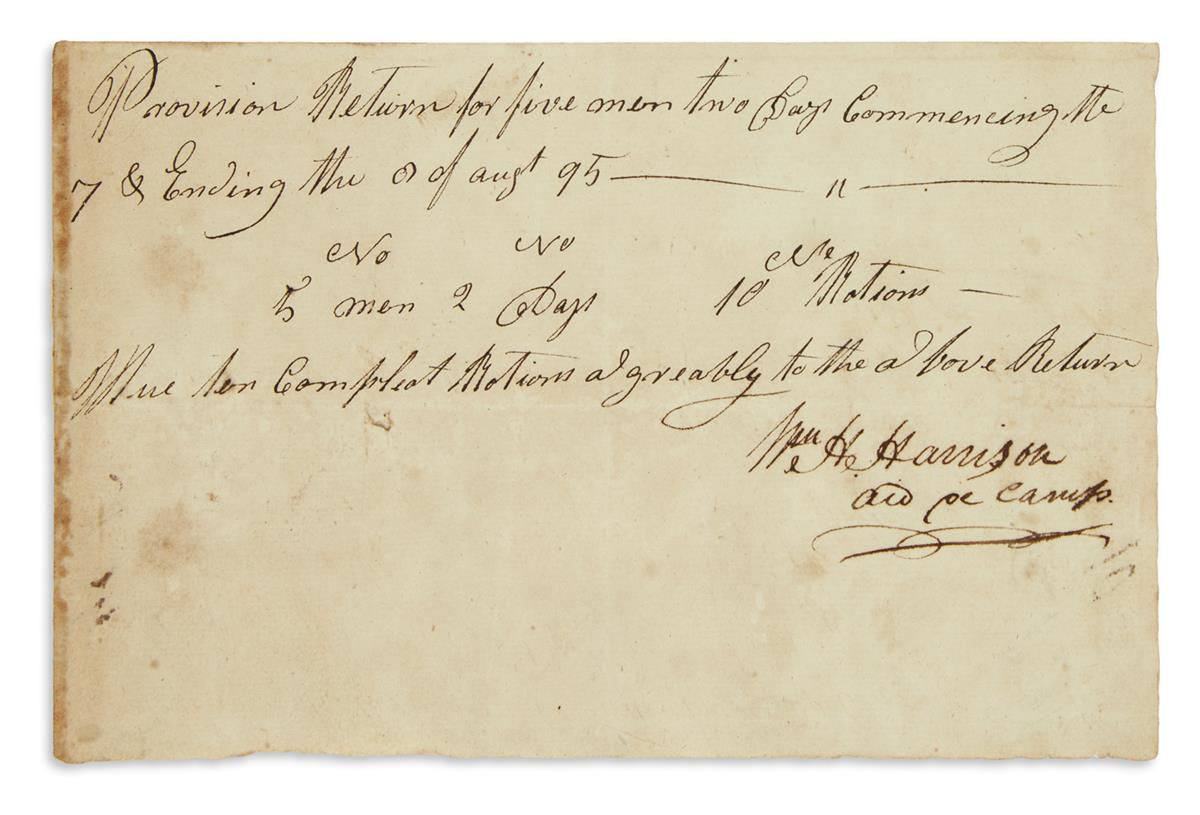 Provision Return for five men two Days Commencing the
7 & Ending the 8 of augt 95 — " —
No No No
5 men 2 Days 10 Rations —
Issue ten Compleat Rations agreably to the above Return
Wm H Harrison
aid de camp.